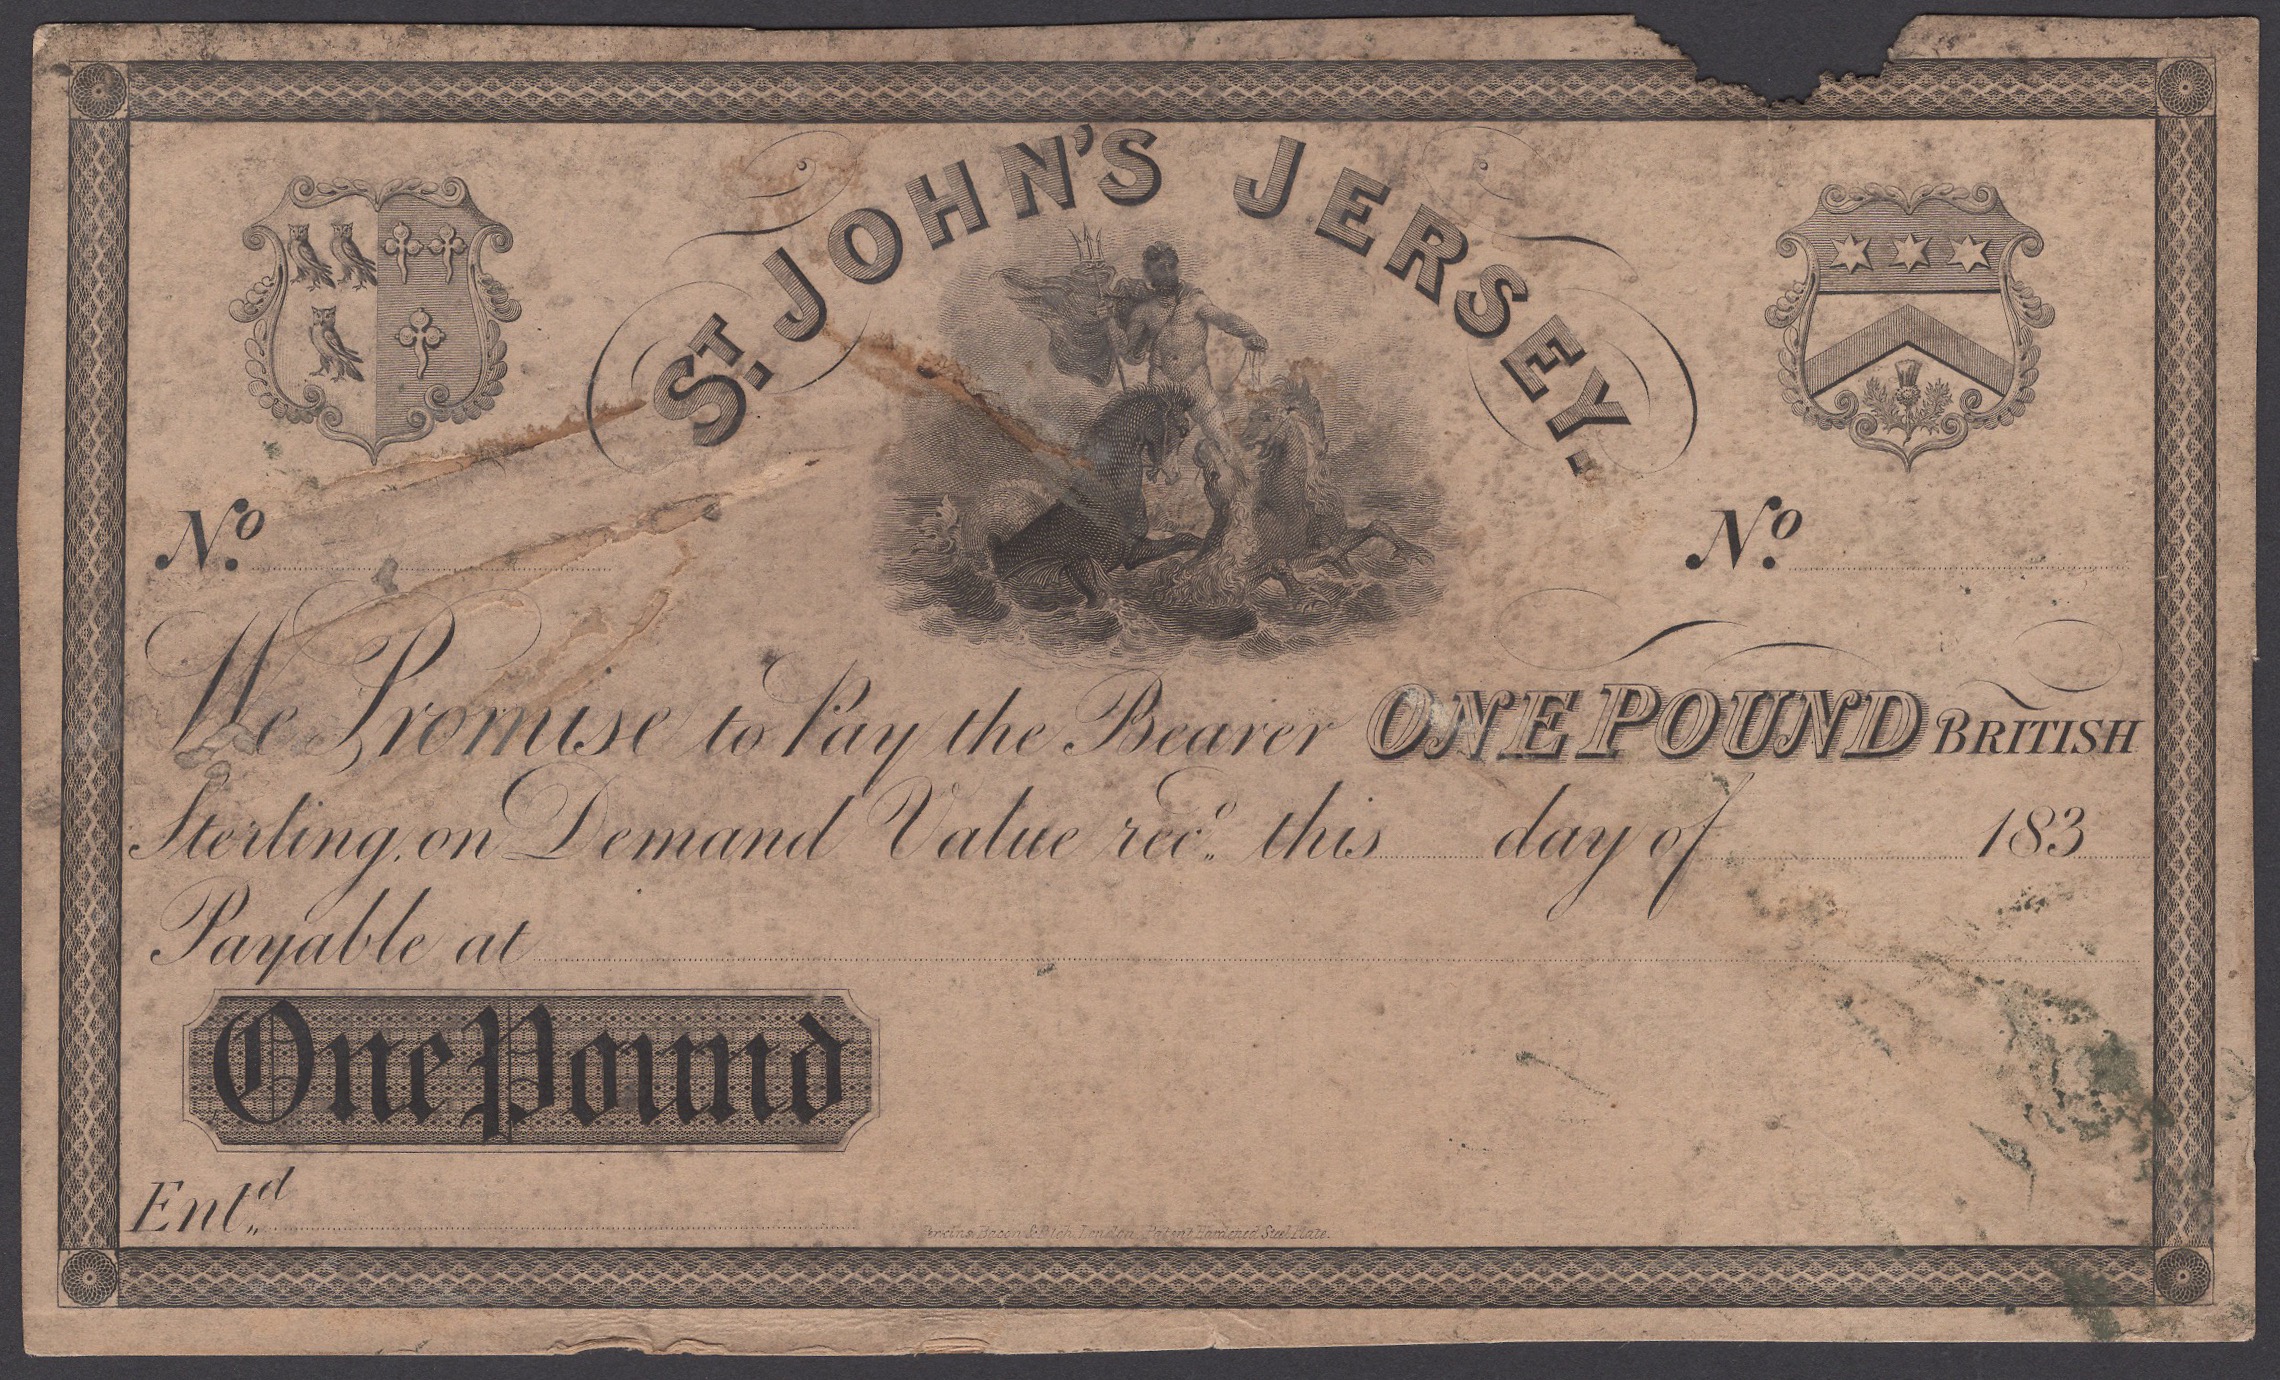 St. JOHN'S JERSEY.
No. No.
We Promise to Pay the Bearer ONE POUND BRITISH
Sterling, on Demand Value recd. this day of 183
Payable at
One Pound
Entd.
Perkins, Bacon & Petch, London. Patent Hardened Steel Plate.